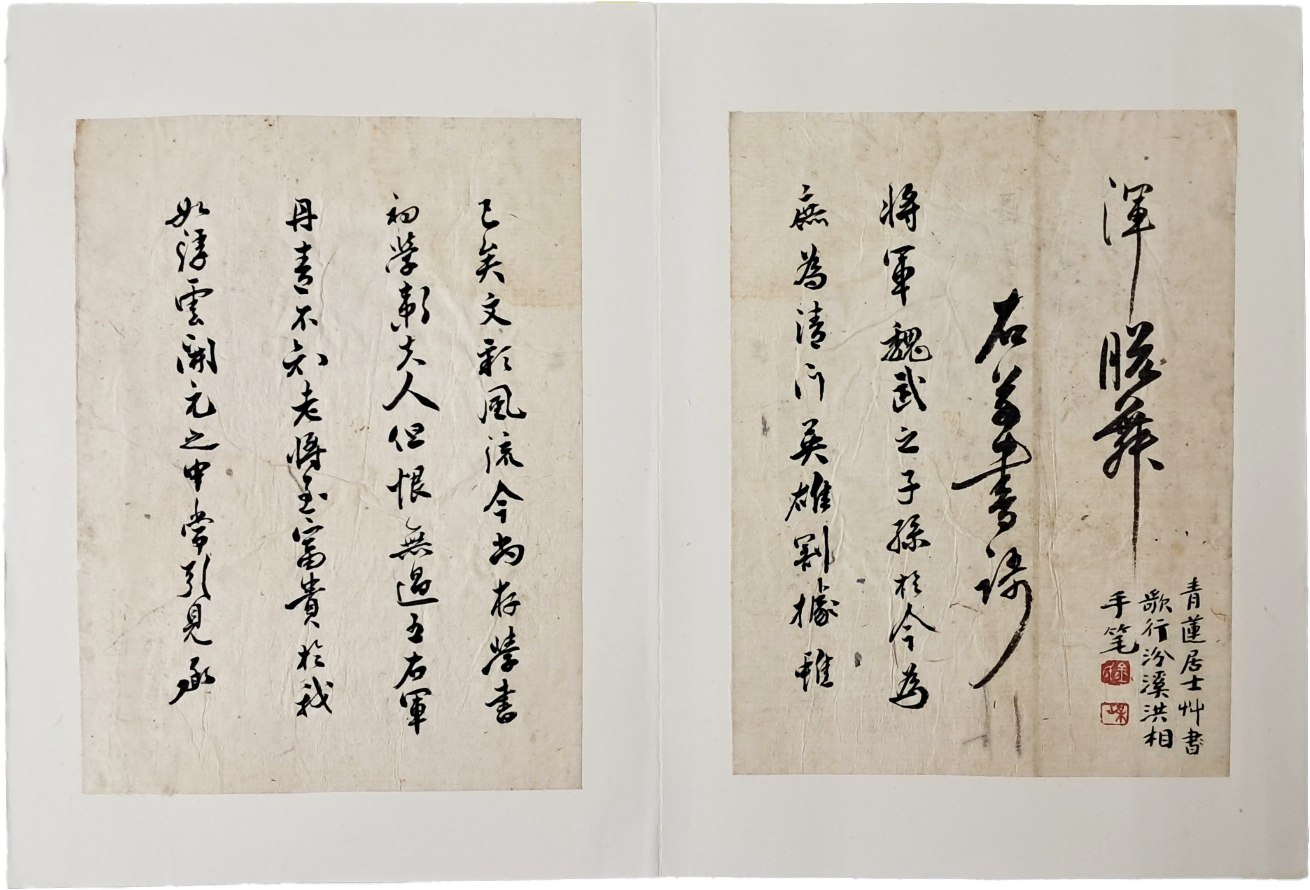 青蓮居士艸書
歌行汾溪洪相
手笔
渾脫舞
右草書謌
將軍魏武之子孫於今為
庶為清門英雄割據雖
已矣文彩風流今尚存學書
初學衛夫人但恨無過王右軍
丹青不知老將至富貴於我
如浮雲開元之中常引見承